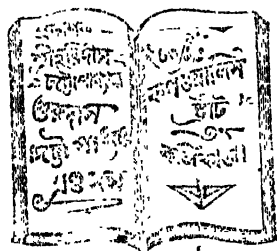 শ্রীহরিদাস
চট্টোপাধ্যায়
গুরুদাস
চট্টোপাধ্যায়
এণ্ড সন্স
কর্ণওয়ালিস
ষ্ট্রীট
কলিকাতা।